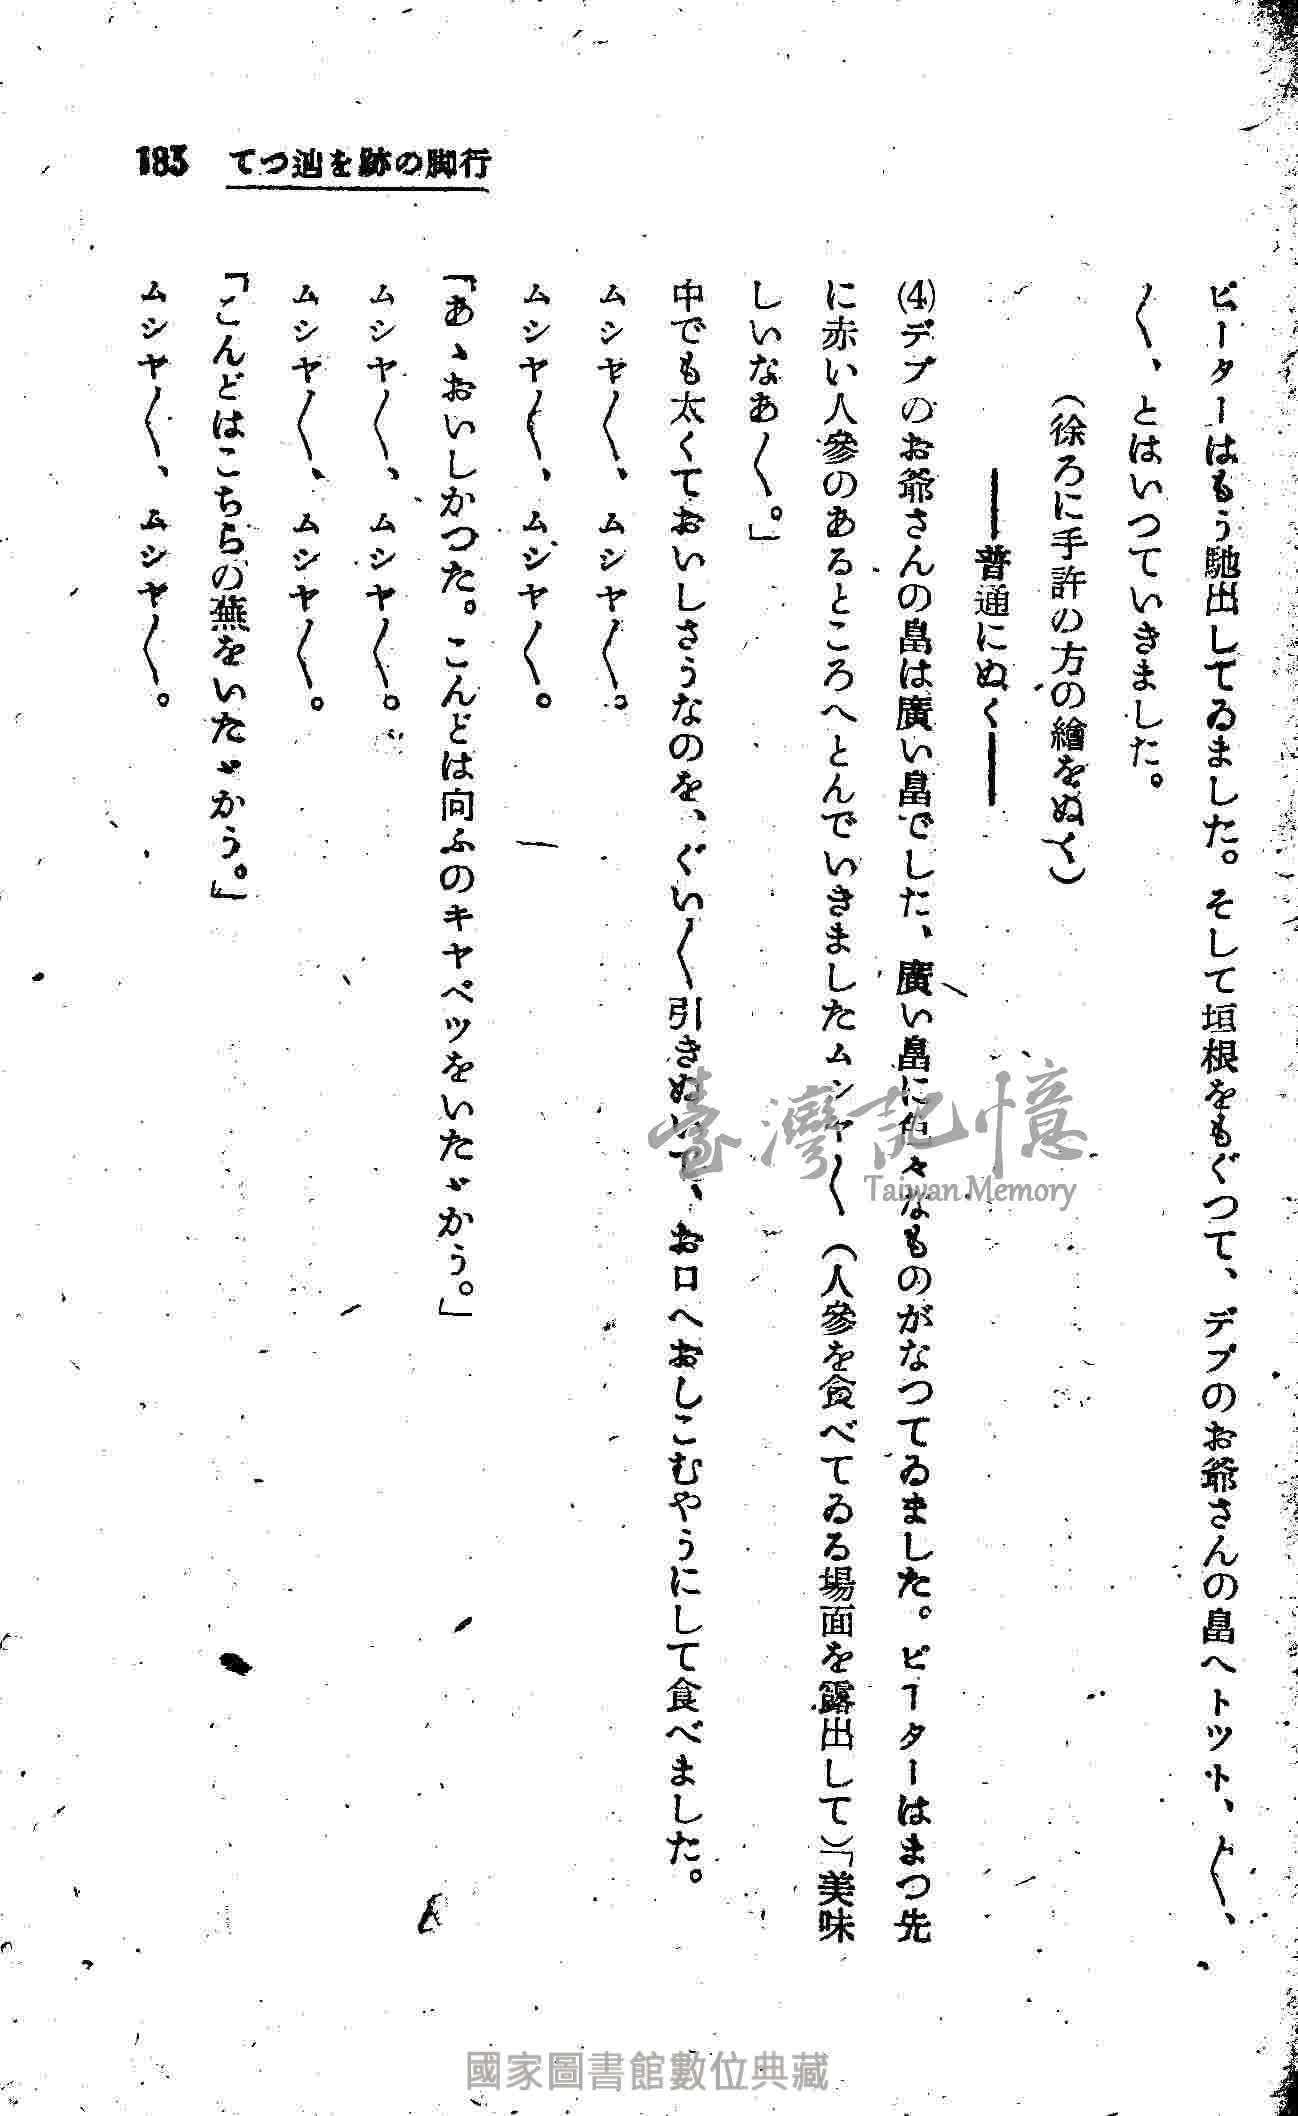 183 てつ辿を跡の脚行
ピーターはもう馳出してゐました。そして垣根をもぐつて、デブのお爺さんの畠へトツト、〱、
〱、とはいつていきました。
（徐ろに手許の方の繪をぬく）
――普通にぬく――
(4)デブのお爺さんの畠は廣い畠でした、廣い畠に色々なものがなつてゐました。ピーターはまつ先
に赤い人參のあるところへとんでいきましたムシヤ〱（人參を食べてゐる場面を露出して）「美味
しいなあ〱。」
中でも太くておいしさうなのを、ぐい〱引きぬいて、お口へおしこむやうにして食べました。
ムシヤ〱、ムシヤ〱。
ムシヤ〱、ムシヤ〱。
「あゝおいしかつた。こんどは向ふのキヤベツをいたゞかう。」
ムシヤ〱、ムシヤ〱。
ムシヤ〱、ムシヤ〱。
「こんどはこちらの蕪をいたゞかう。」
ムシヤ〱、ムシヤ〱。
臺灣記憶
Taiwan Memory
國家圖書館數位典藏